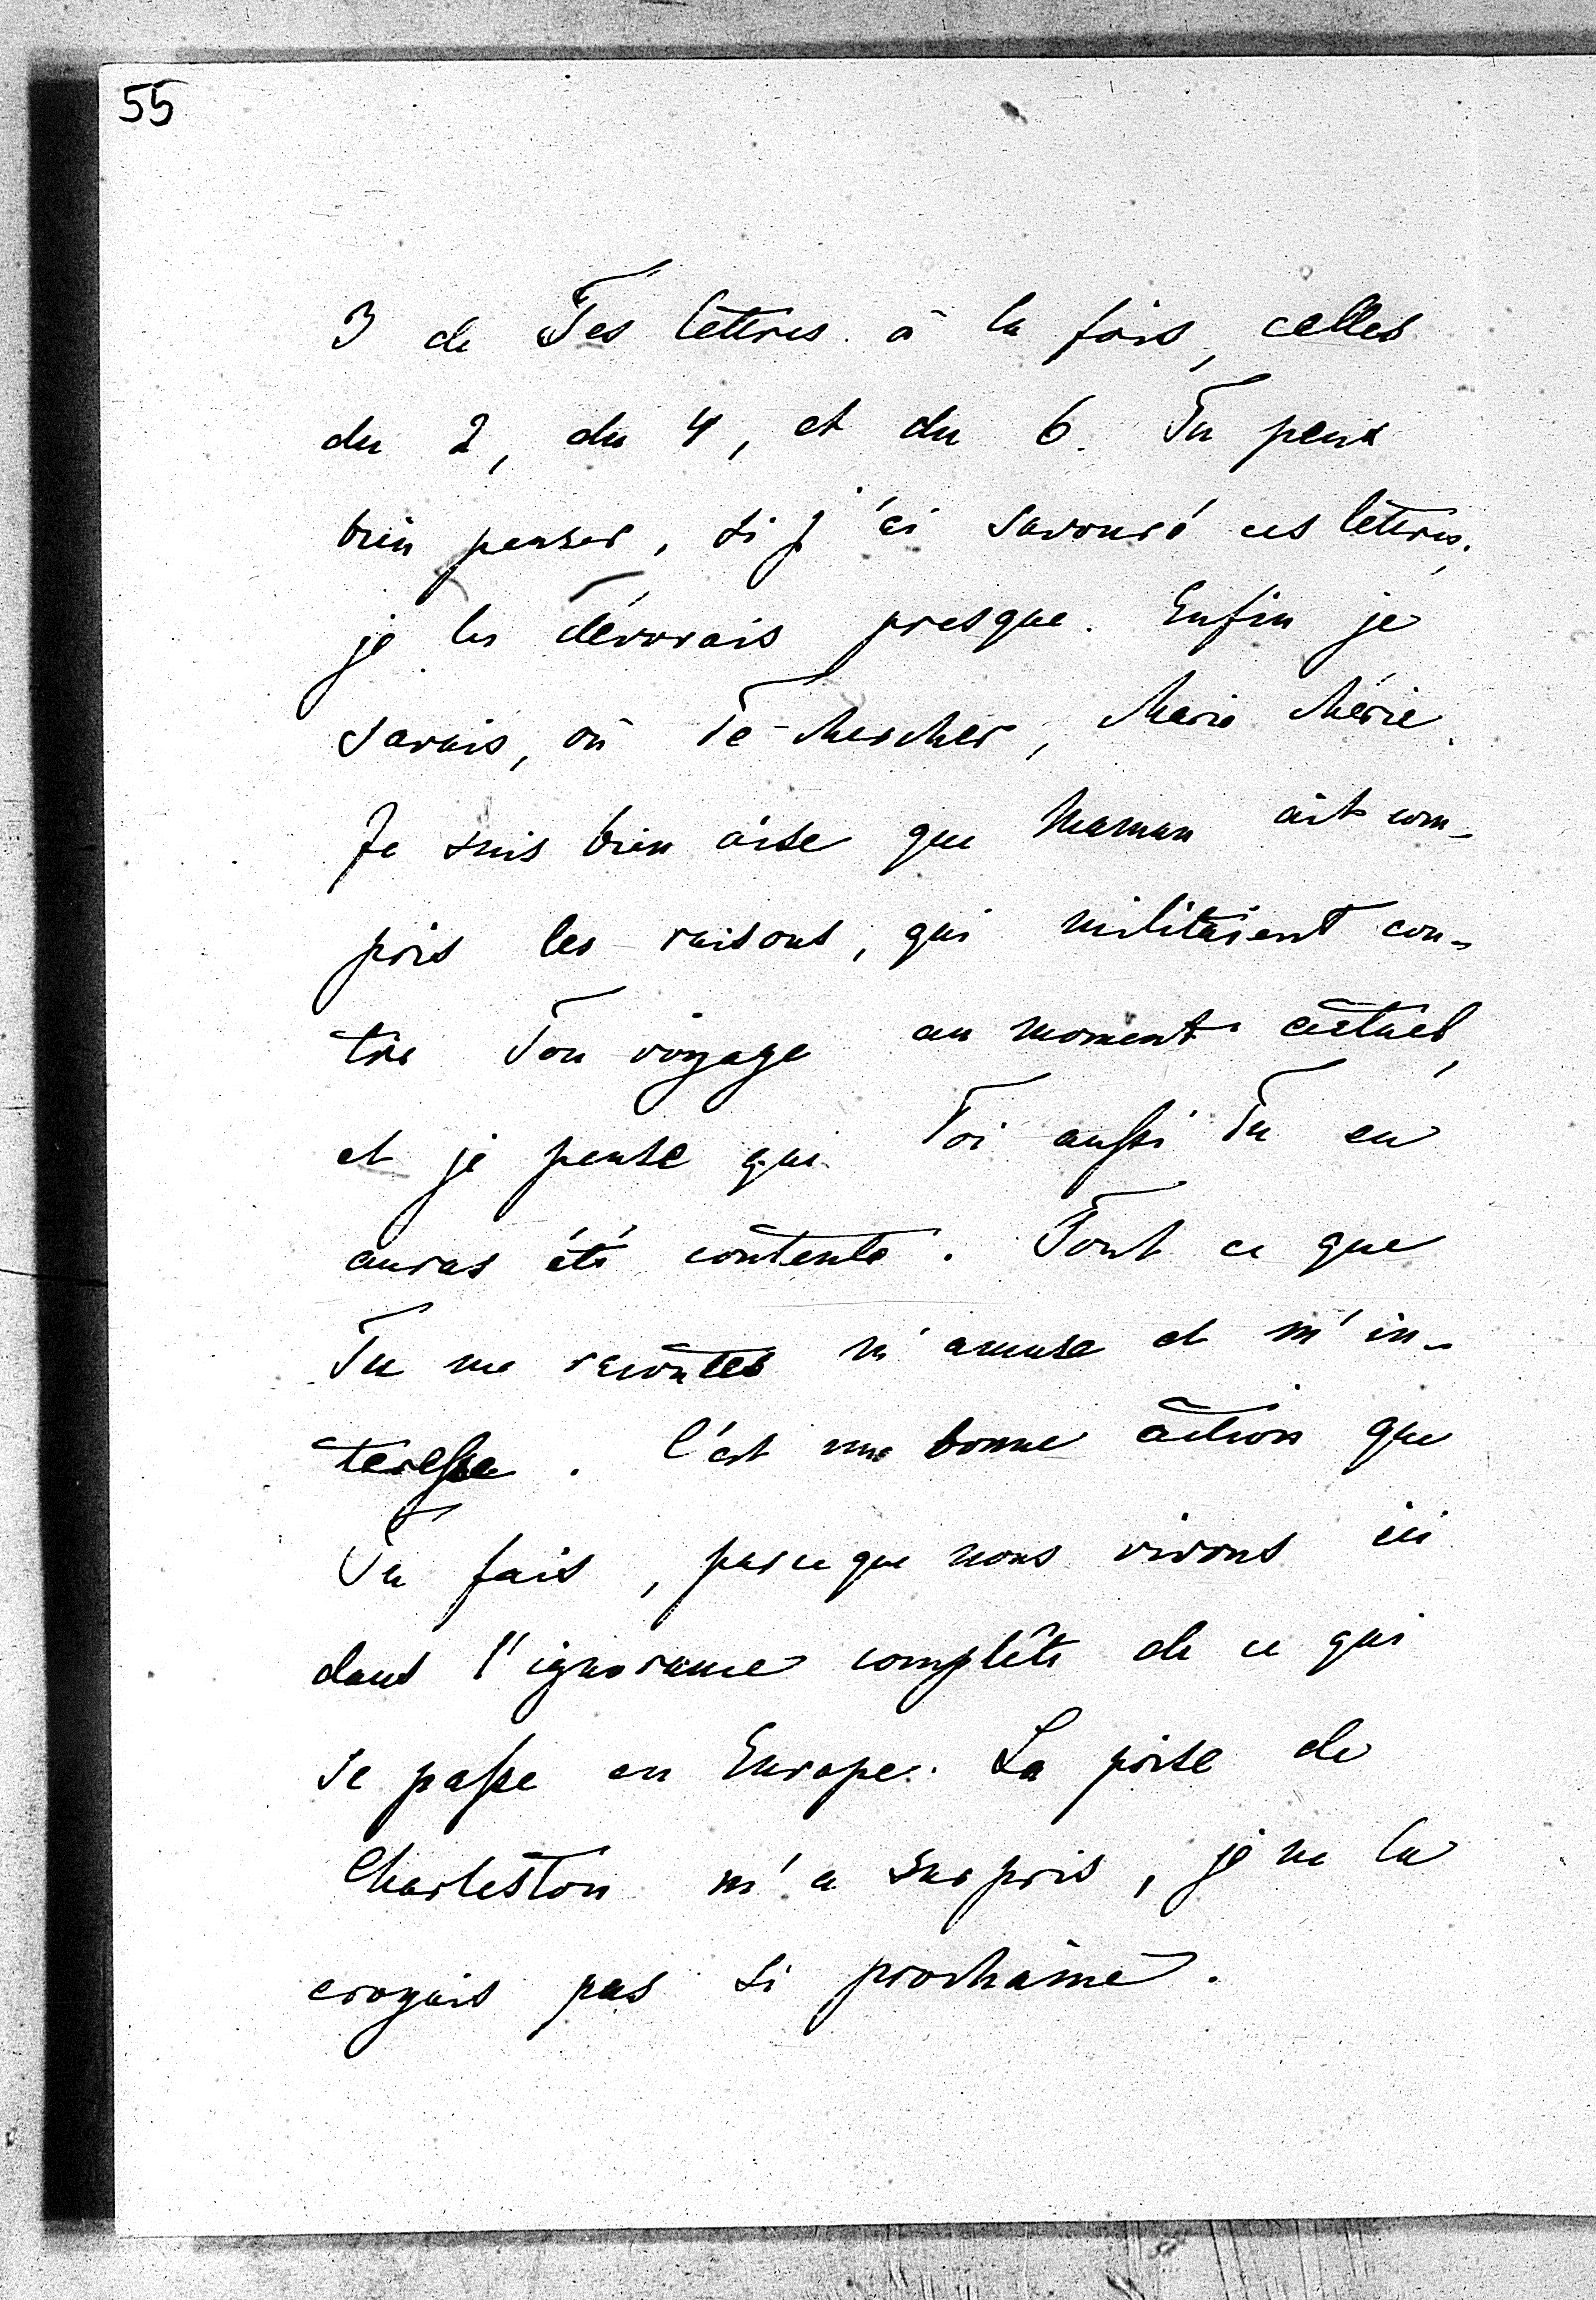 55
3 de Tes lettres à la fois, celles
du 2, du 4, et du 6. Tu peux
bien penser, si j'ai savouré ces lettres,
je les dévorais presque. Enfin je
savais, où Te chercher, Marie chérie.
Je suis bien aise que Maman ait com-
pris les raisons, qui militaient con-
tre Ton voyage au moment actuel,
et je pense que Toi aussi Tu en
auras été contente. Tout ce que
Tu me racontes m'amuse et m'in-
teresse. C'est une bonne action que
Tu fais, parceque nous vivons ici
dans l'ignorance complête de ce qui
se passe en Europe. La prise de
Charleston m'a surpris, je ne la
croyais pas si prochaine.